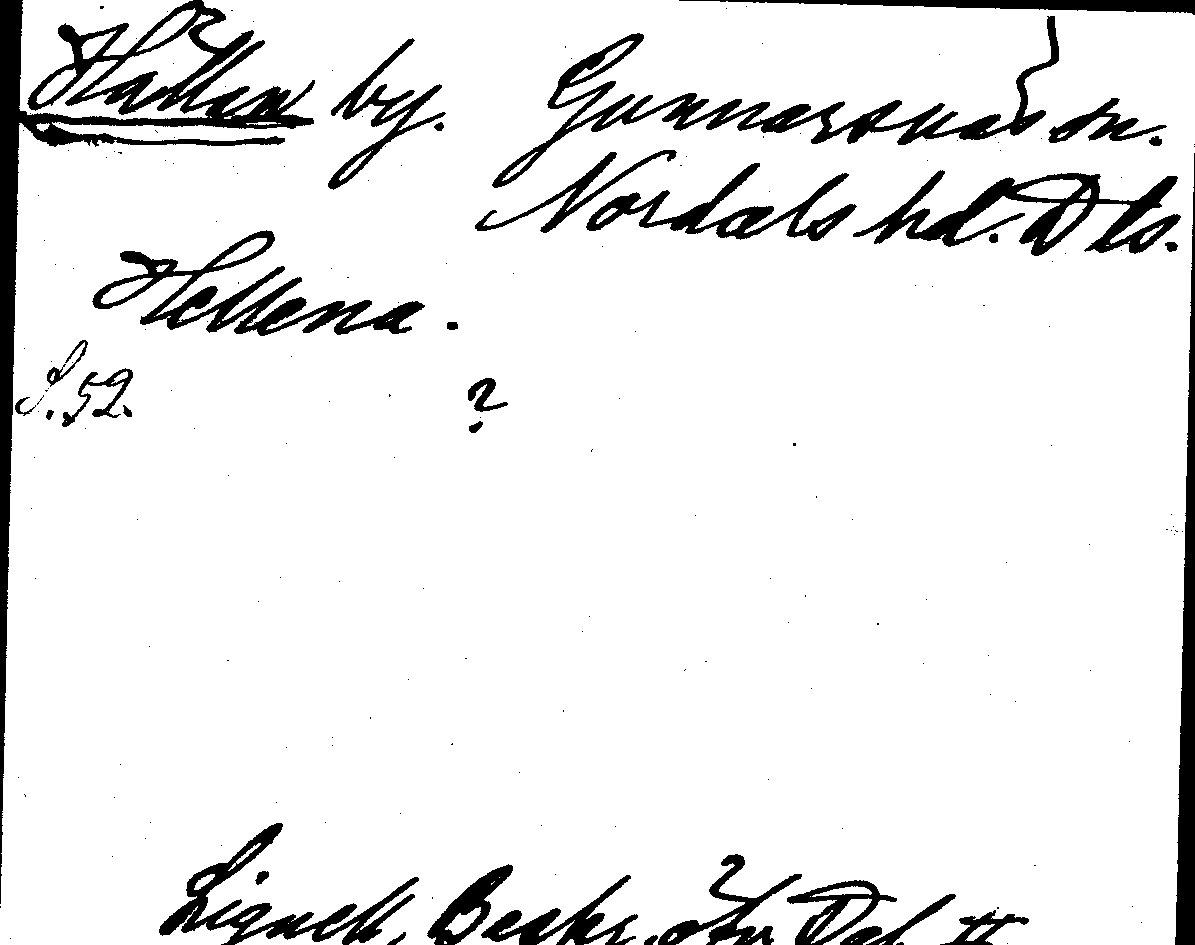 Hällan by. Gunnarsnäs sn.
Nordals hd. Dls.
Hellena.
S. 52. ?
Lignell, Beskr. öfv. Dal. II